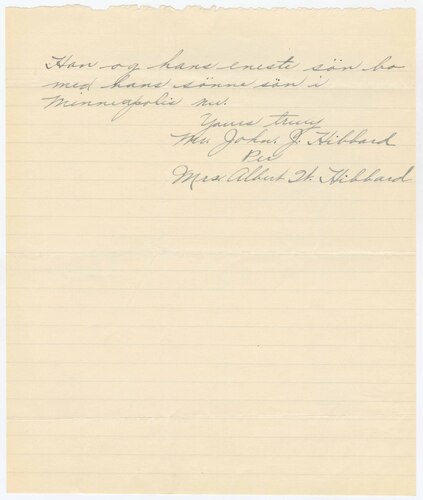 Han og hans eneste sön bo
med hans sönne sön i
Minneapolis nu.
Yours truly
Mr. John. J. Hibbard
Per
Mrs. Albert H. Hibbard